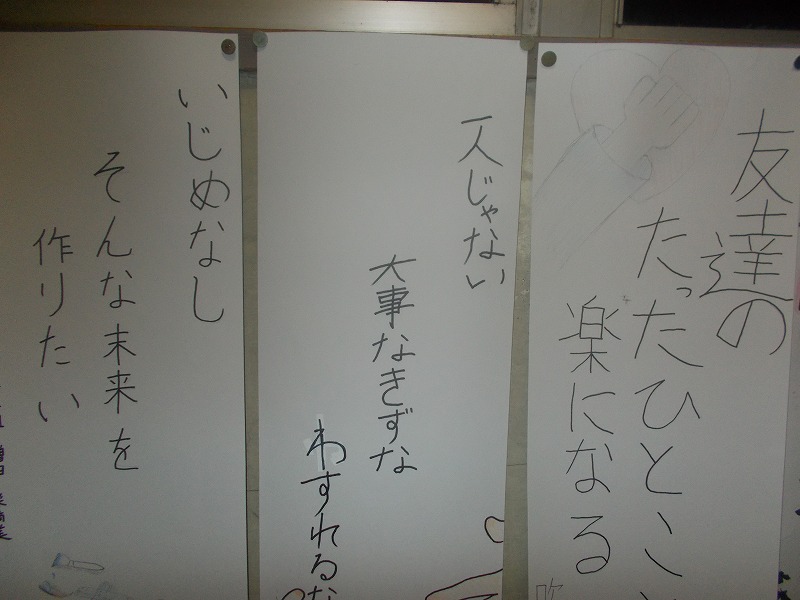 友達の
たったひとこと
楽になる
一人じゃない
大事なきずな
わすれるな
いじめなし
そんな未来を
作りたい